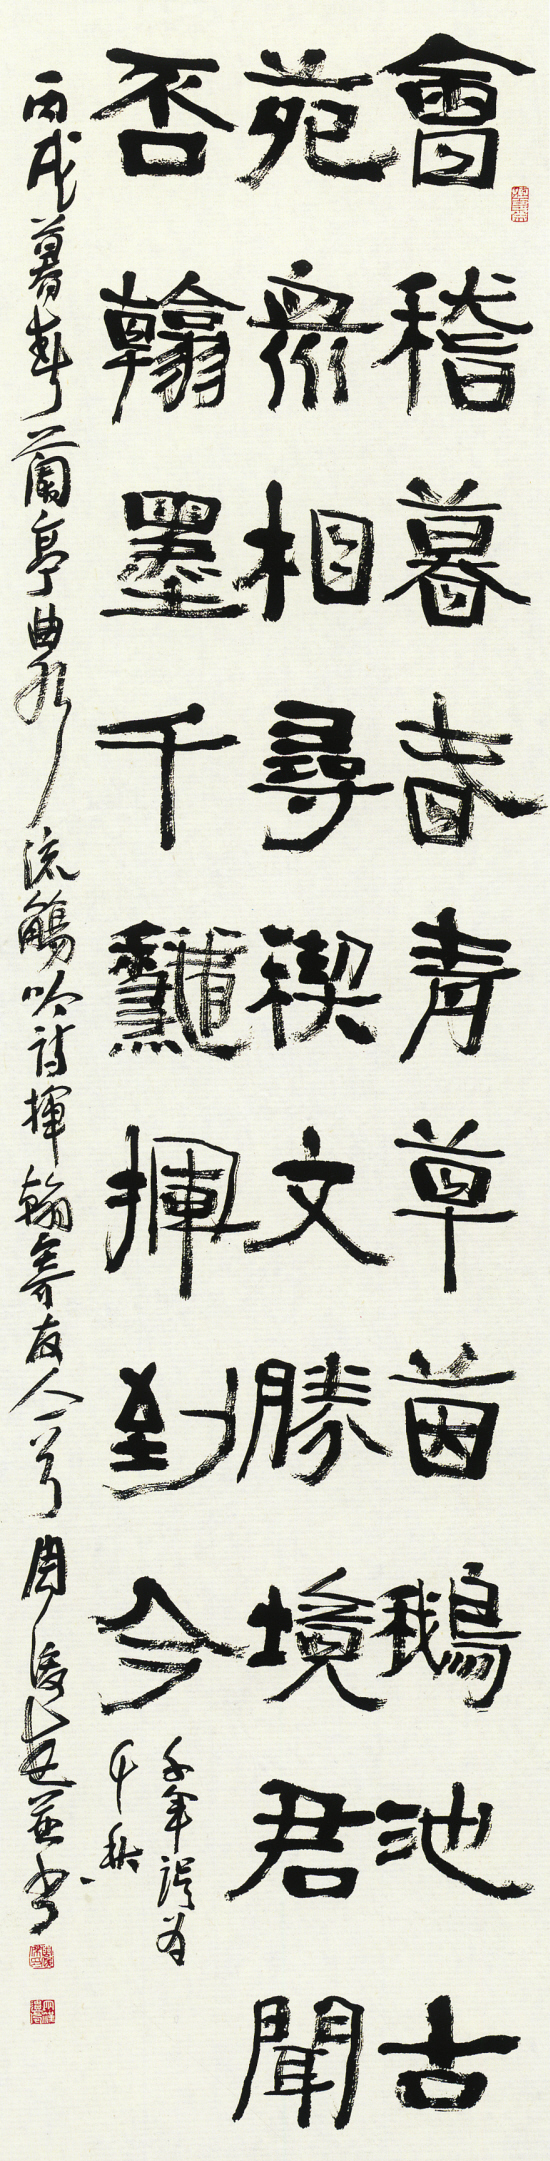 會稽暮春青草茵鵝池古
苑衆相尋禊文勝境君聞
否翰墨千龝揮到今
千年誤为
千秋
丙戌暮春于蘭亭曲水流觴吟詩揮翰寄友人一首周俊杰並書